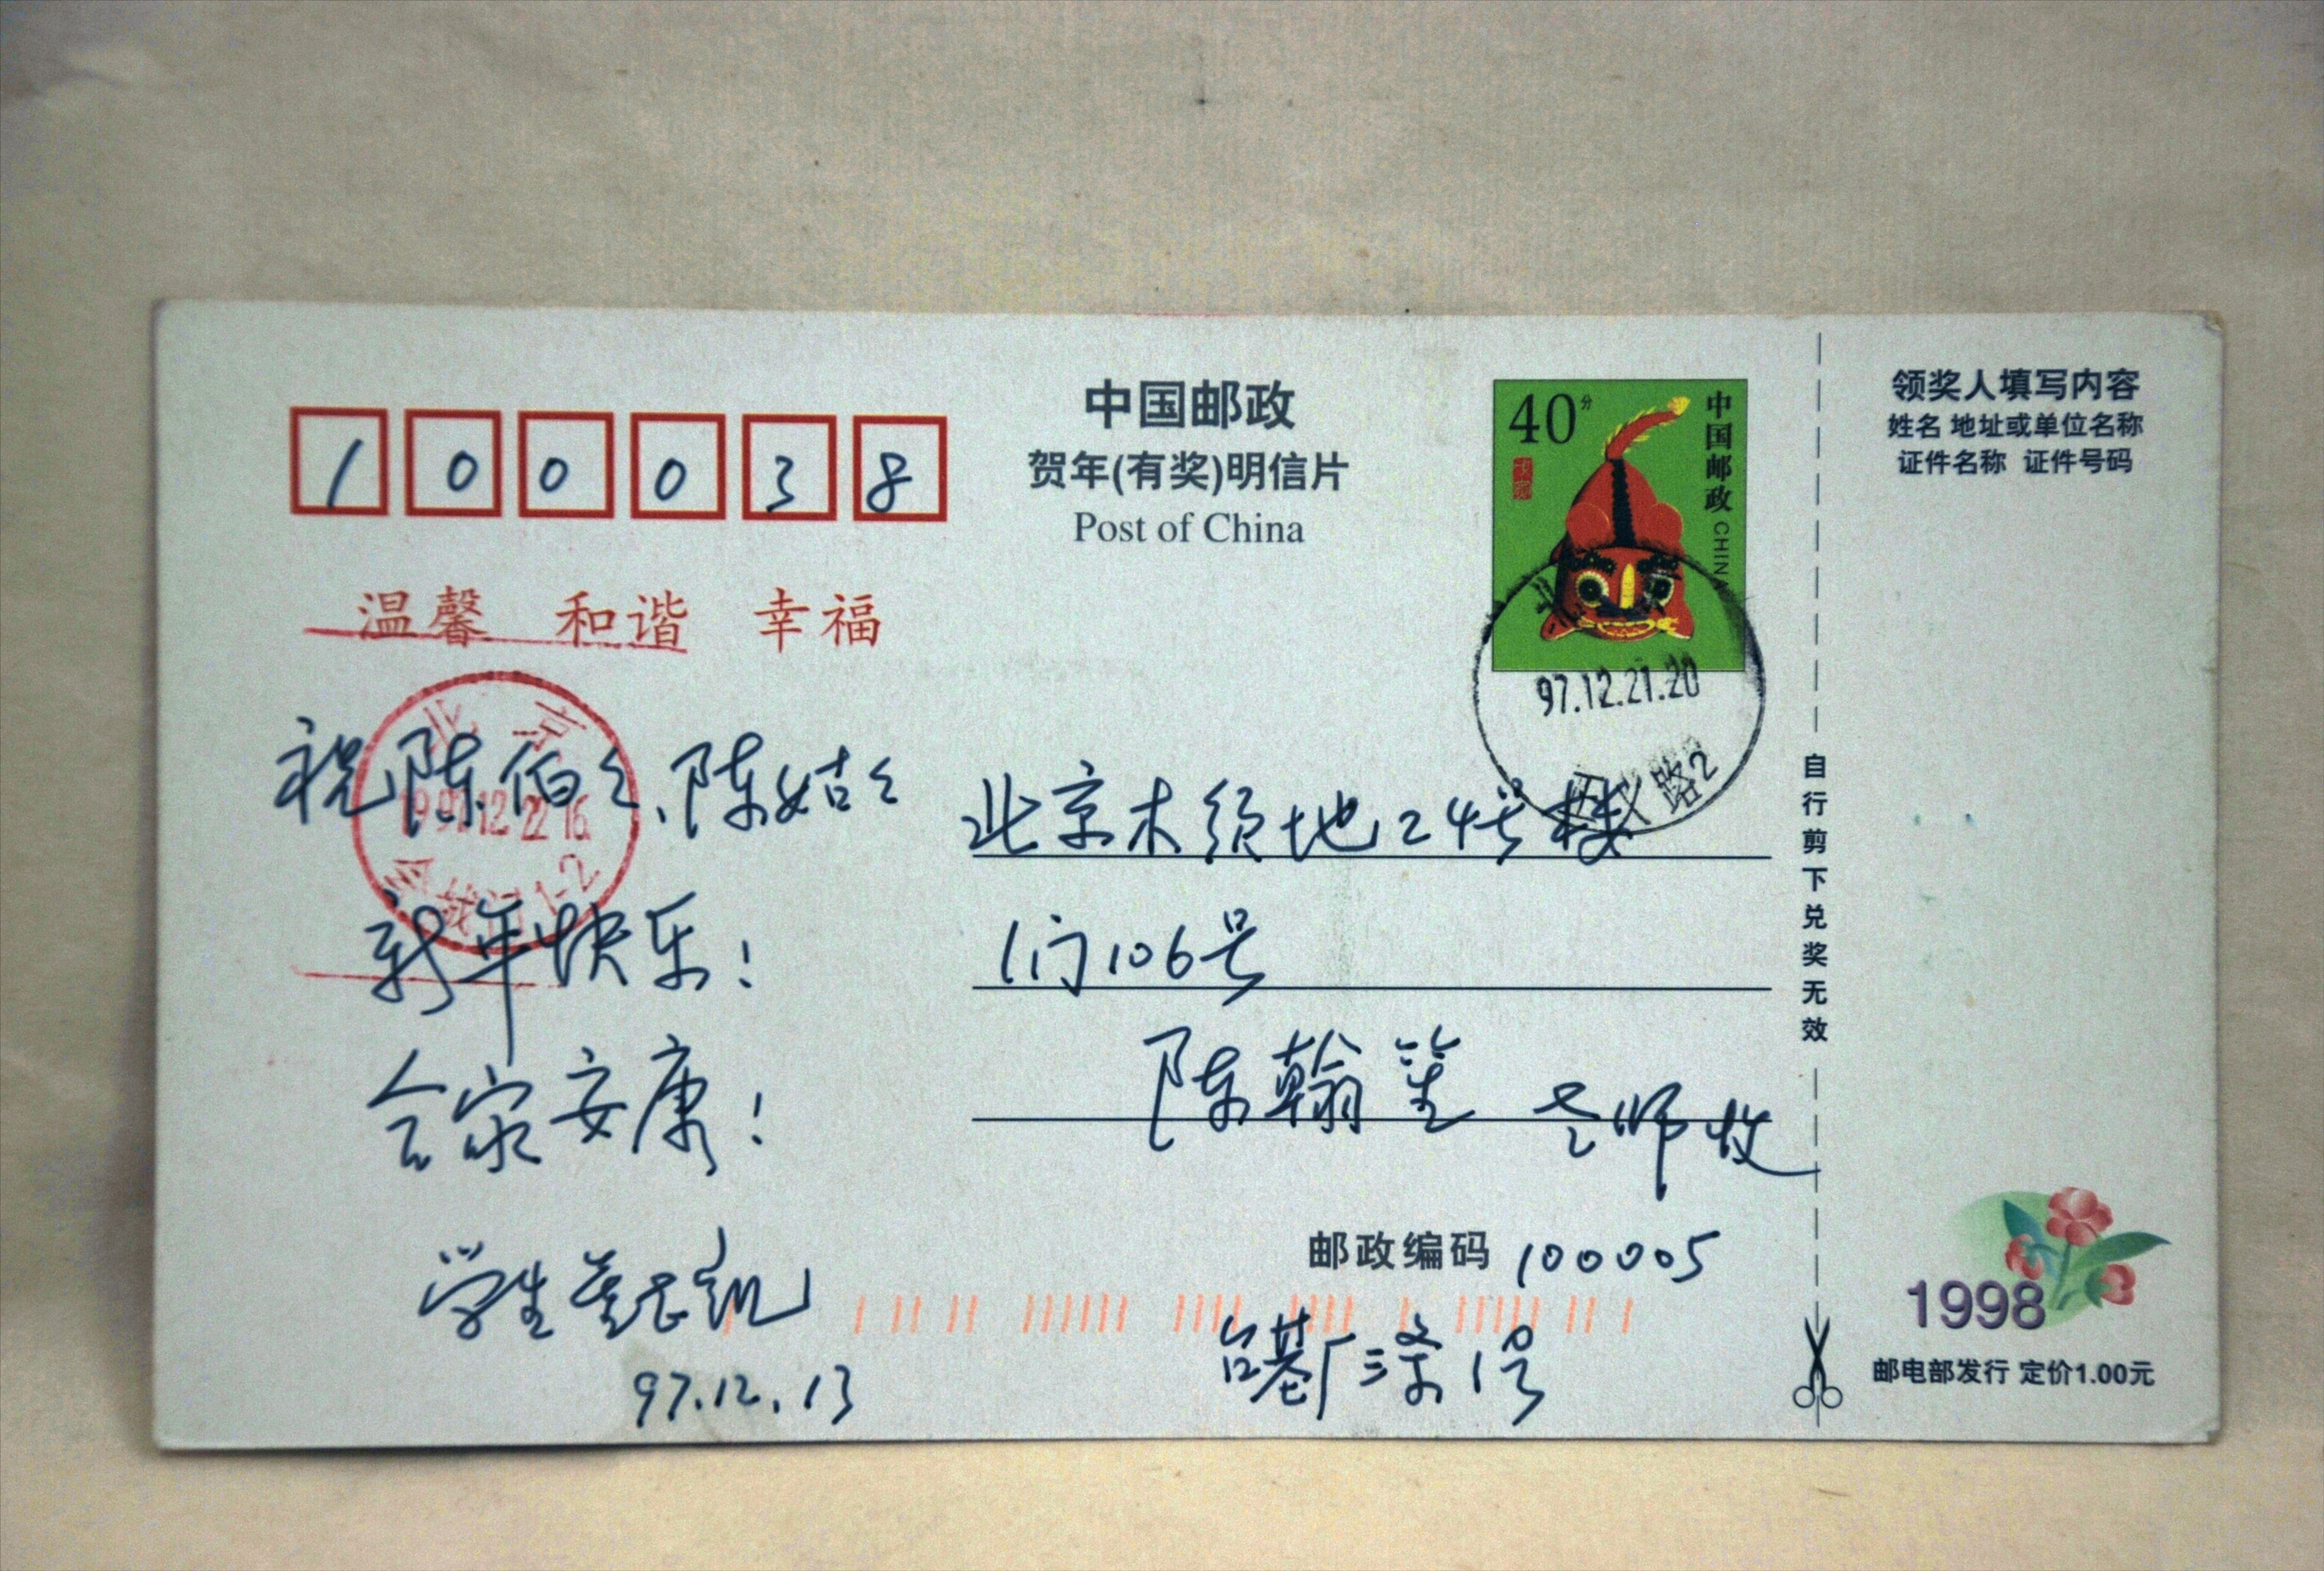 100038
中国邮政
贺年(有奖)明信片
Post of China
40分
中国邮政 CHINA
领奖人填写内容
姓名 地址或单位名称
证件名称 证件号码
温馨 和谐 幸福
北京
1997.12.22 16
1-2
97.12.21.20
路2
祝陈伯々、陈姑々
新年快乐!
合家安康!
学生
97.12.13
北京木须地24号楼
1门106号
陈翰笙 老师收
邮政编码 100005
台基厂三条1号
自行剪下兑奖无效
1998
邮电部发行 定价1.00元